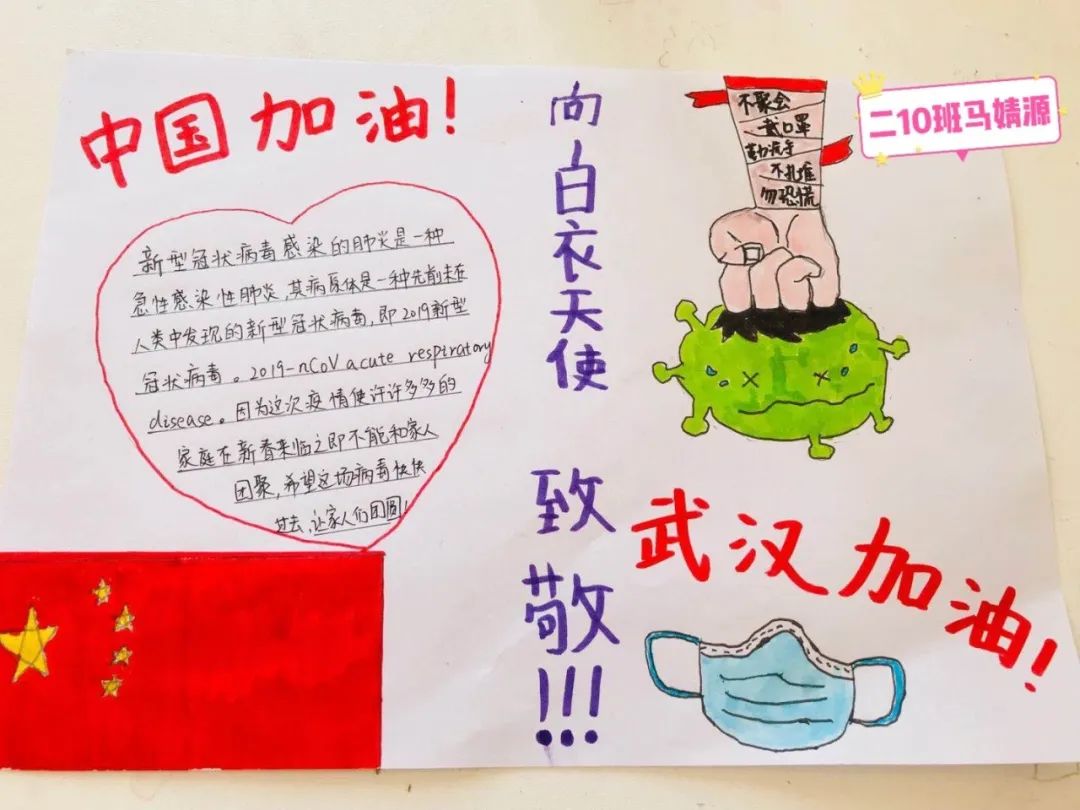 中国加油!
新型冠状病毒感染的肺炎是一种
急性感染性肺炎,其病原体是一种先前未在
人类中发现的新型冠状病毒,即2019新型
冠状病毒。2019-nCoV acute respiratory
disease。因为这次疫情使许许多多的
家庭在新春来临之即不能和家人
团聚,希望这场病毒快快
过去,让家人们团圆!
向白衣天使
致敬!!!
不聚会
戴口罩
勤洗手
不扎堆
勿恐慌
二10班马婧源
武汉加油!